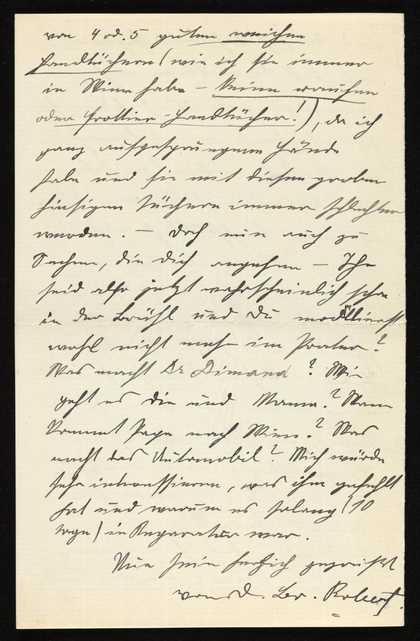 von 4 od. 5 guten weichen
Handtüchern (wie ich sie immer
in Wien habe – keine rauhen
oder Frottier-Handtücher!), da ich
ganz aufgesprungene Hände
habe und sie mit diesen groben
hiesigen Tüchern immer schlechter
werden. – Doch nun auch zu
Sachen, die Dich angehen – Ihr
seid also jetzt wahrscheinlich schon
in der Brühl und Du modellierst
wohl nicht mehr im Prater?
Was macht Dr Dimand? Wie
geht es dir und Mama? Wann
kommt Papa nach Wien? Was
macht das Automobil? Mich würde
sehr interessieren, was ihm gefehlt
hat und warum es solang (10
Tage) in Reparatur war.
Nun sei herzlich gegrüßt
von d. Br. Robert.